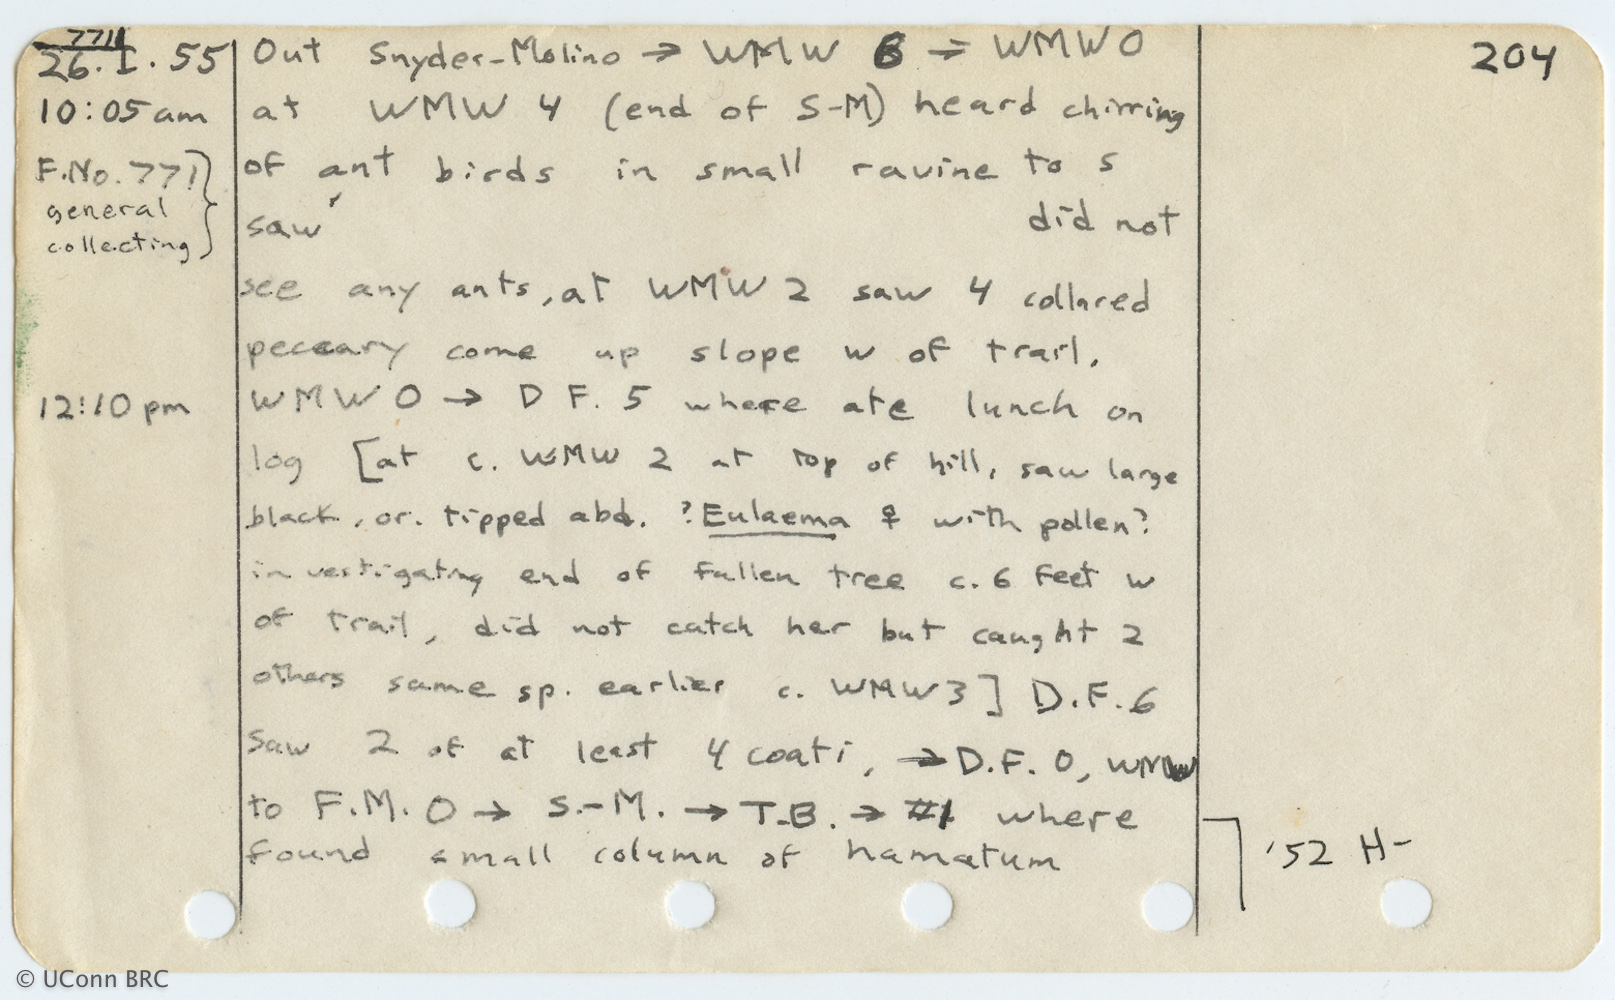 7711
26.I.55 Out Snyder-Molino → WMW 6 → WMW 0 204
10:05 am at WMW 4 (end of S-M) heard chirring
F.No. 771 of ant birds in small ravine to s
general saw did not
collecting
see any ants, at WMW 2 saw 4 collared
peccary come up slope w of trail.
12:10 pm WMW 0 → D F. 5 where ate lunch on
log [at c. WMW 2 at top of hill, saw large
black, or. tipped abd. ?Eulaema ♀ with pollen?
investigating end of fallen tree c. 6 feet w
of trail, did not catch her but caught 2
others same sp. earlier c. WMW 3] D.F. 6
saw 2 of at least 4 coati, → D.F. 0, WMW
to F.M. 0 → S.-M. → T-B. → #1 where
found small column of hamatum '52 H-
© UConn BRC